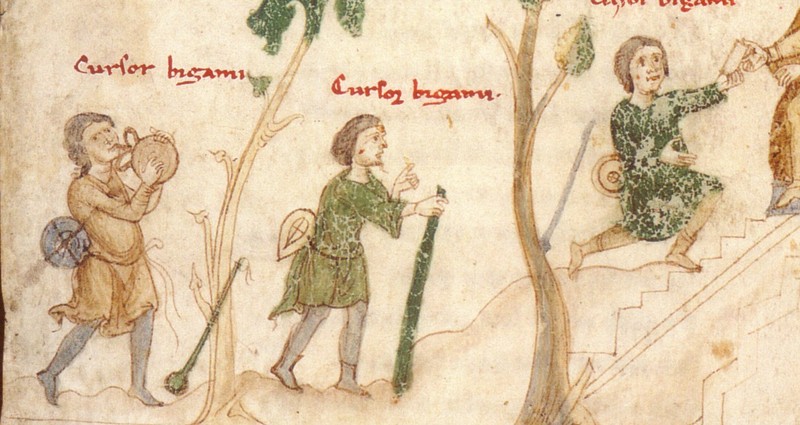 Cursor bigami
Cursor bigami.
bigami